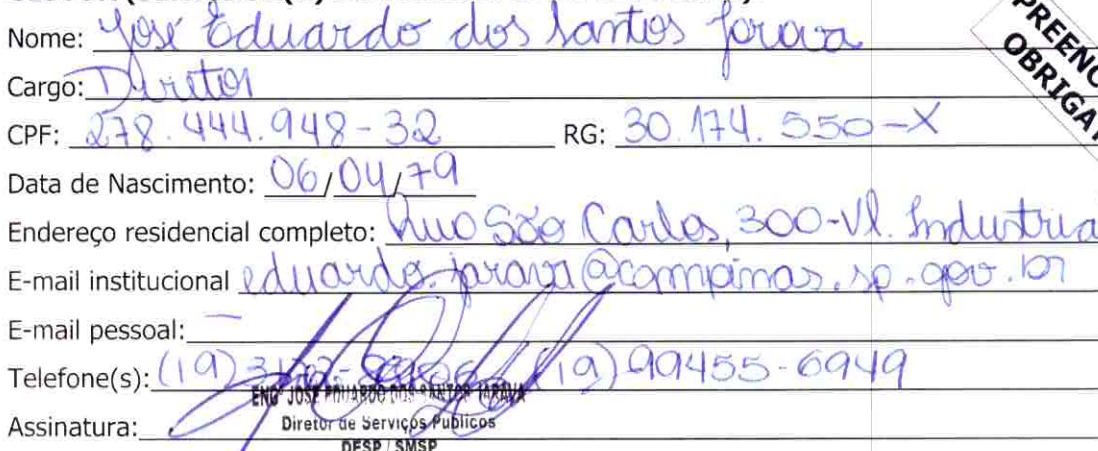 PREENC
OBRIGAT
Nome: José Eduardo dos Santos Jarava
Cargo: Diretor
CPF: 278.444.948-32 RG: 30.174.550-X
Data de Nascimento: 06/04/79
Endereço residencial completo: Rua São Carlos, 300-Vl. Industrial
E-mail institucional eduardo.jarava@campinas.sp.gov.br
E-mail pessoal: —
Telefone(s): (19) (19) 99455-6949
ENGº JOSÉ EDUARDO DOS SANTOS JARAVA
Assinatura: Diretor de Serviços Públicos
DESP / SMSP